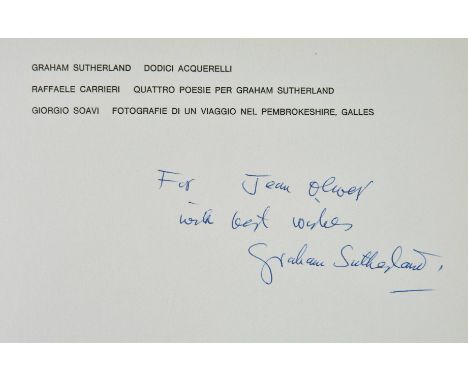 GRAHAM SUTHERLAND DODICI ACQUERELLI
RAFFAELE CARRIERI QUATTRO POESIE PER GRAHAM SUTHERLAND
GIORGIO SOAVI FOTOGRAFIE DI UN VIAGGIO NEL PEMBROKESHIRE, GALLES
For Jean Oliver
with best wishes
Graham Sutherland.